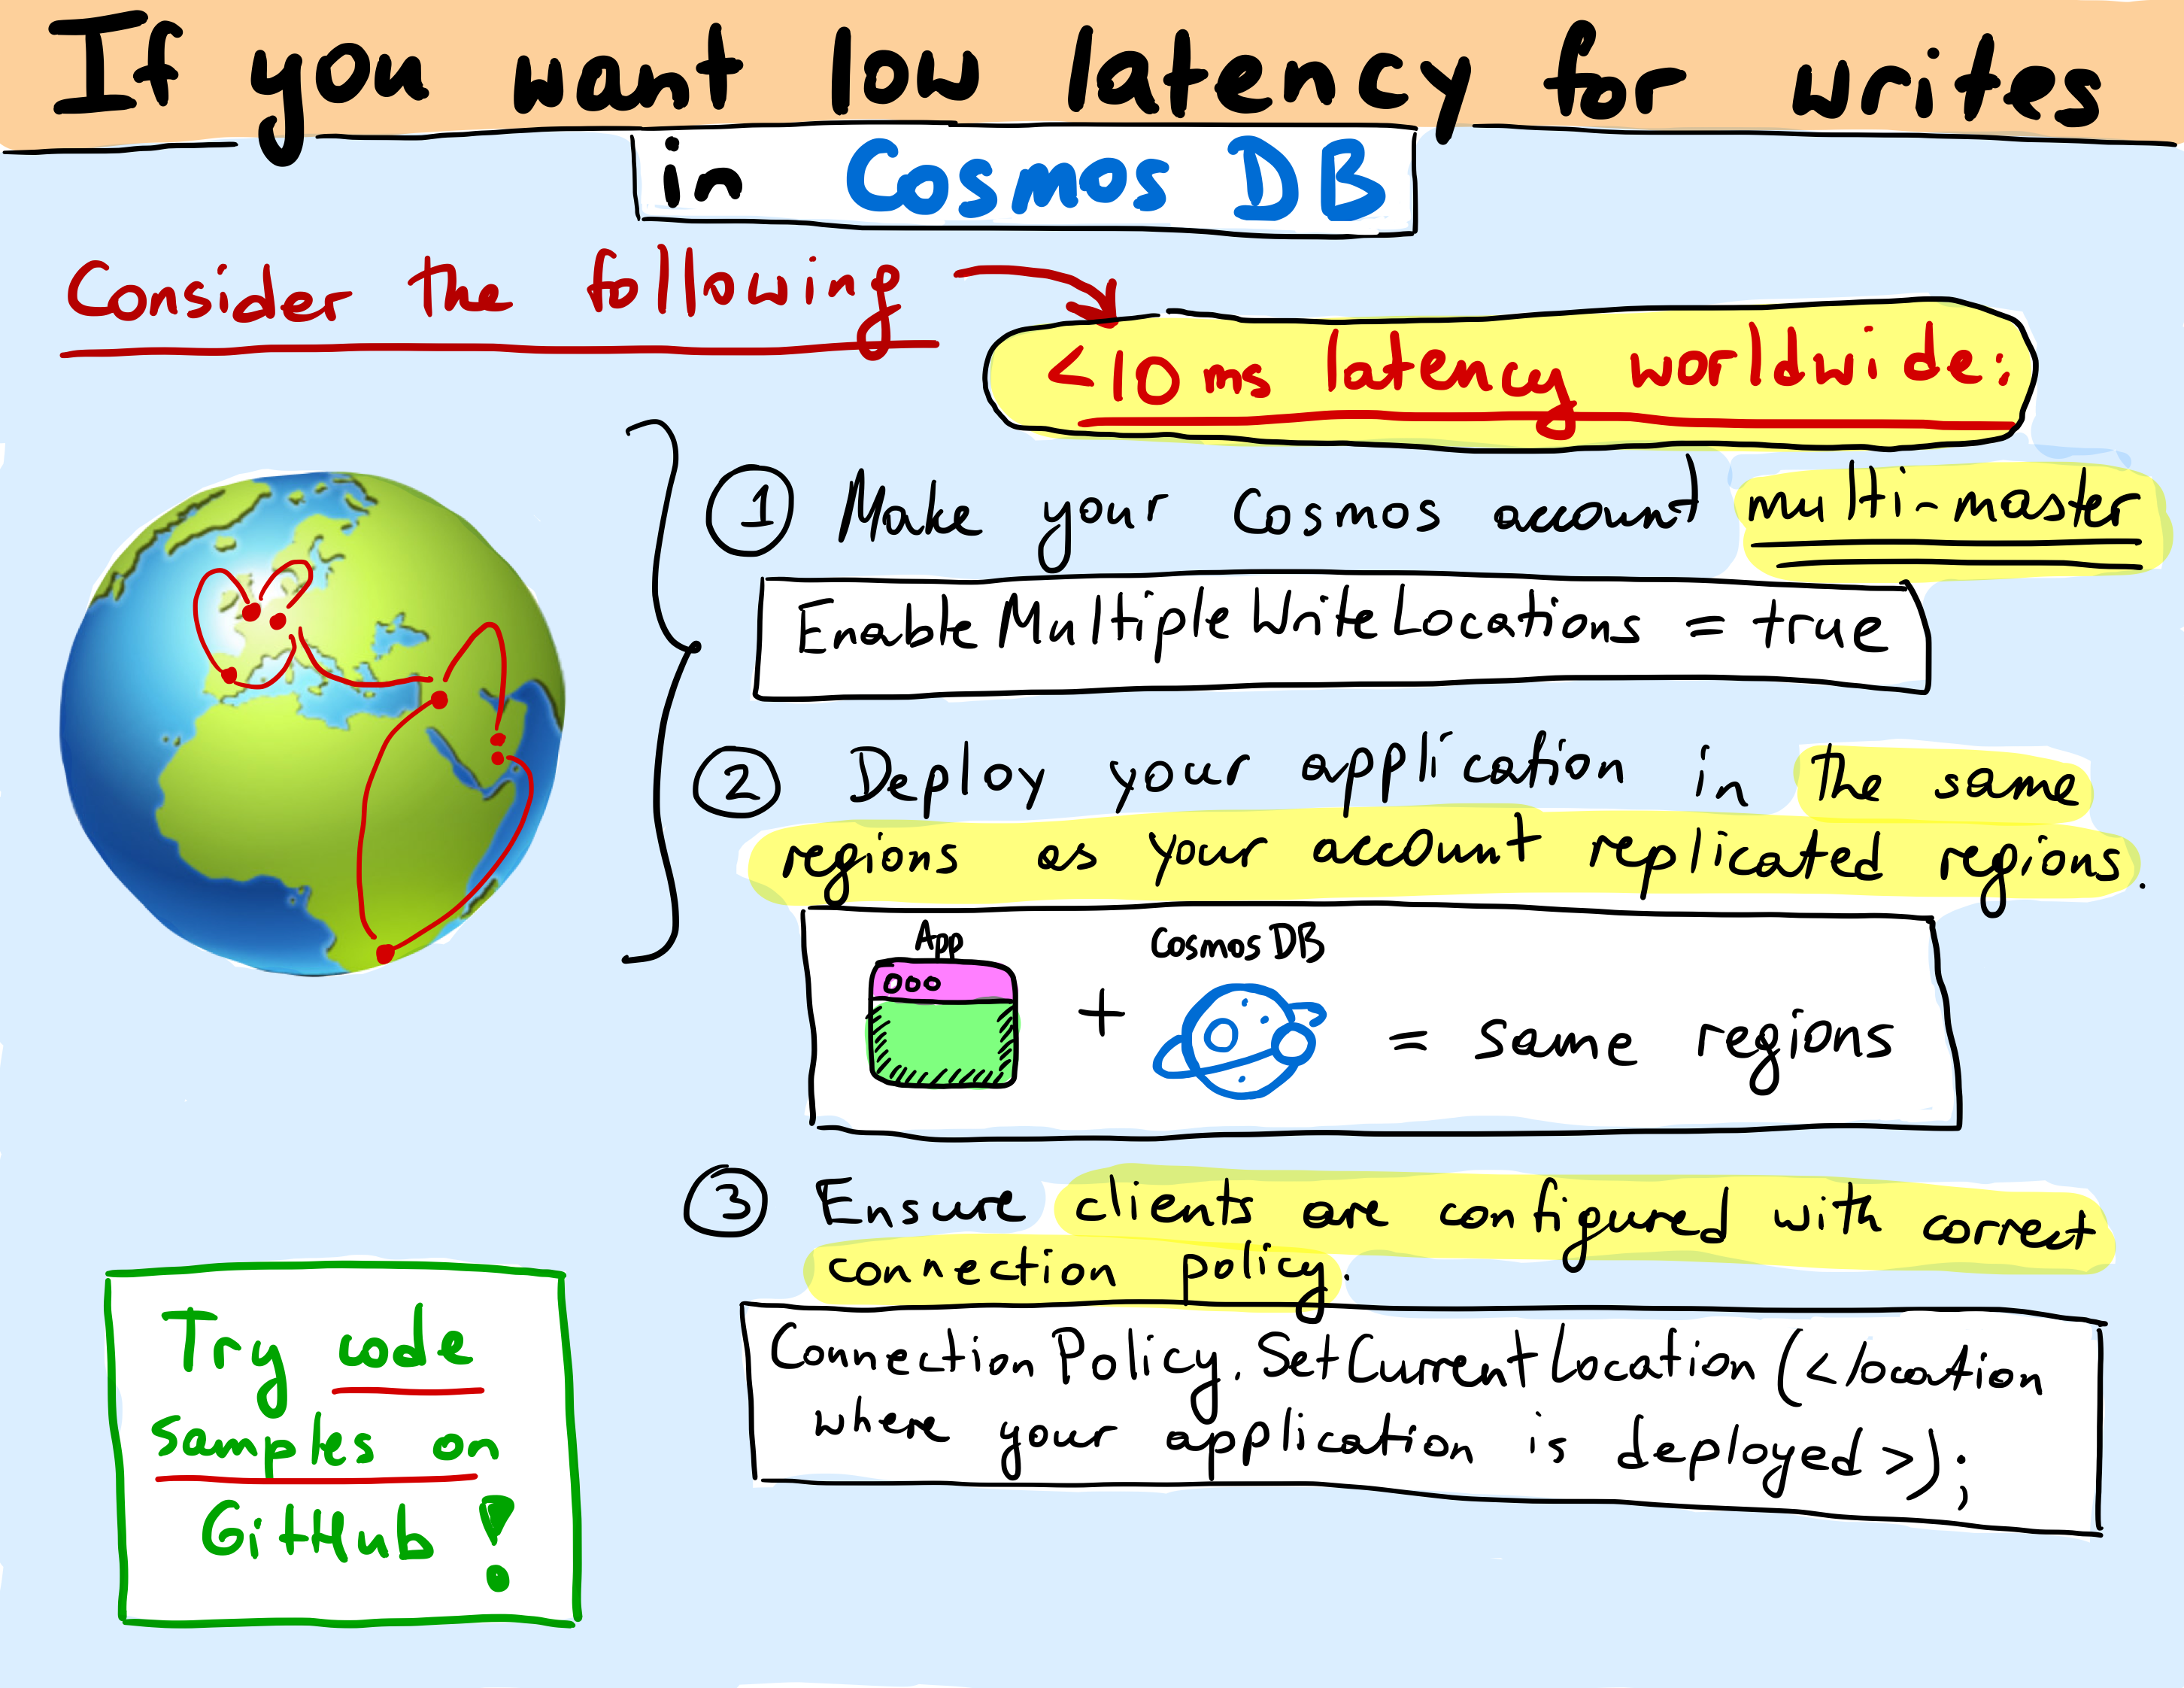 If you want low latency for writes
in Cosmos DB
Consider the following
<10 ms latency worldwide:
1 Make your Cosmos account multi-master
EnableMultipleWriteLocations = true
2 Deploy your application in the same
regions as your account replicated regions.
App
+
Cosmos DB
= same regions
3 Ensure clients are configured with correct
connection policy.
ConnectionPolicy.SetCurrentLocation(<location
where your application is deployed>);
Try code
samples on
GitHub!